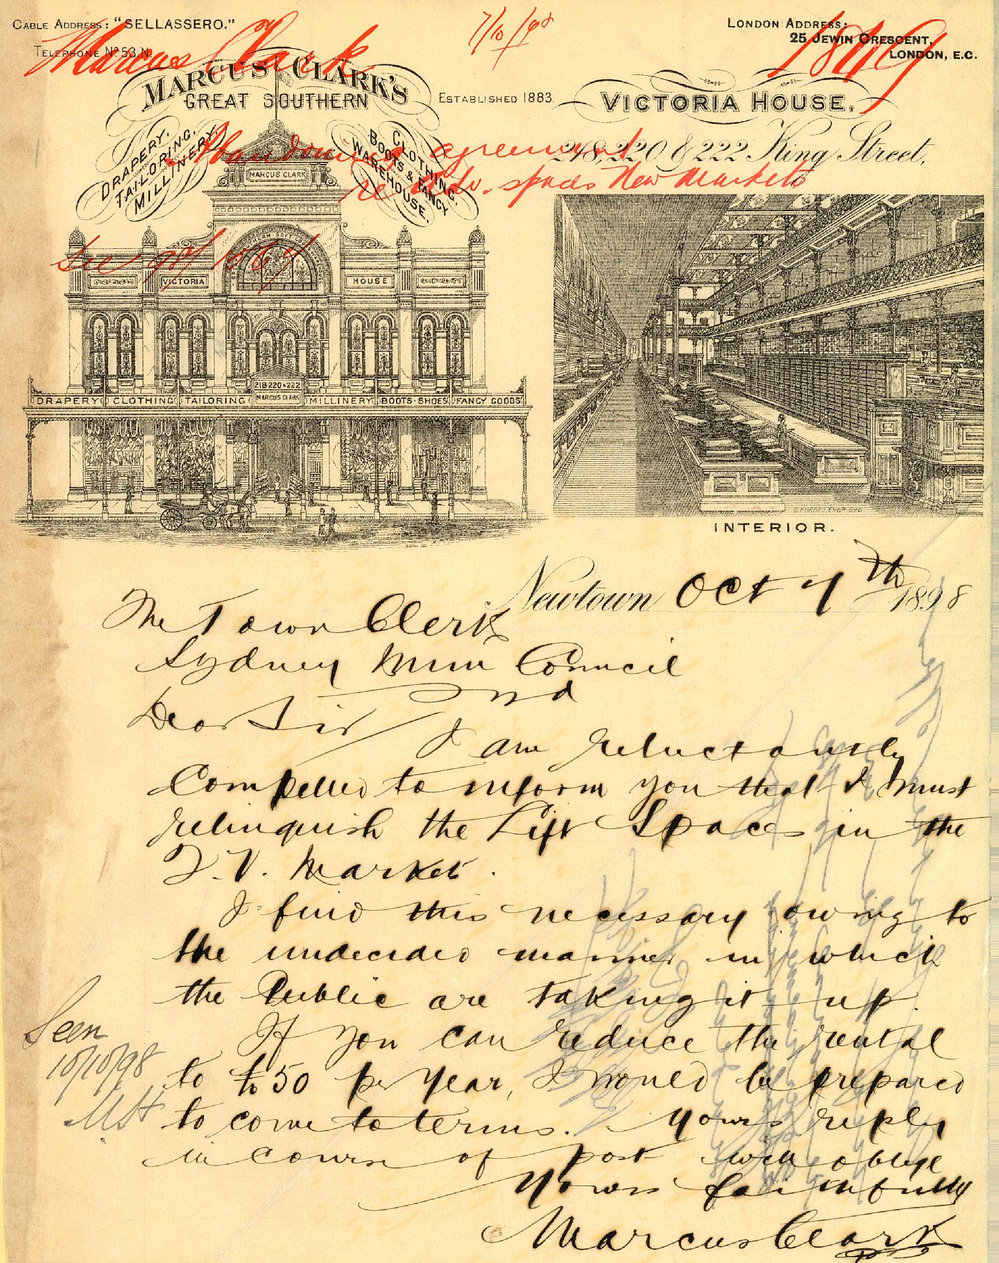 CABLE ADDRESS: "SELLASSERO."
TELEPHONE No 53.N.
7/10/98
LONDON ADDRESS:
25 JEWIN CRESCENT,
LONDON, E.C.
Marcus Clark
MARCUS CLARK'S
GREAT SOUTHERN
ESTABLISHED 1883.
VICTORIA HOUSE.
218, 220 & 222 King Street,
DRAPERY,
TAILORING,
MILLINERY,
CLOTHING,
BOOTS & FANCY
WAREHOUSE.
agreement
re adv. spaces New Markets
See 98/1864
MARCUS CLARK
VICTORIA
HOUSE
218·220 & 222
MARCUS CLARK
DRAPERY CLOTHING TAILORING MILLINERY BOOTS·SHOES FANCY GOODS
INTERIOR.
Newtown Oct 7th 1898
The Town Clerk
Sydney Mun Council
Dear Sir
I am reluctantly
Compelled to inform you that I must
relinquish the Lift Spaces in the
Q.V. Market.
I find this necessary owing to
the undecided manner in which
the Public are taking it up.
If you can reduce the rental
to £50 per year, I would be prepared
to come to terms. Yours reply
in course of post will oblige
Yours faithfully
Marcus Clark
Seen
10/10/98